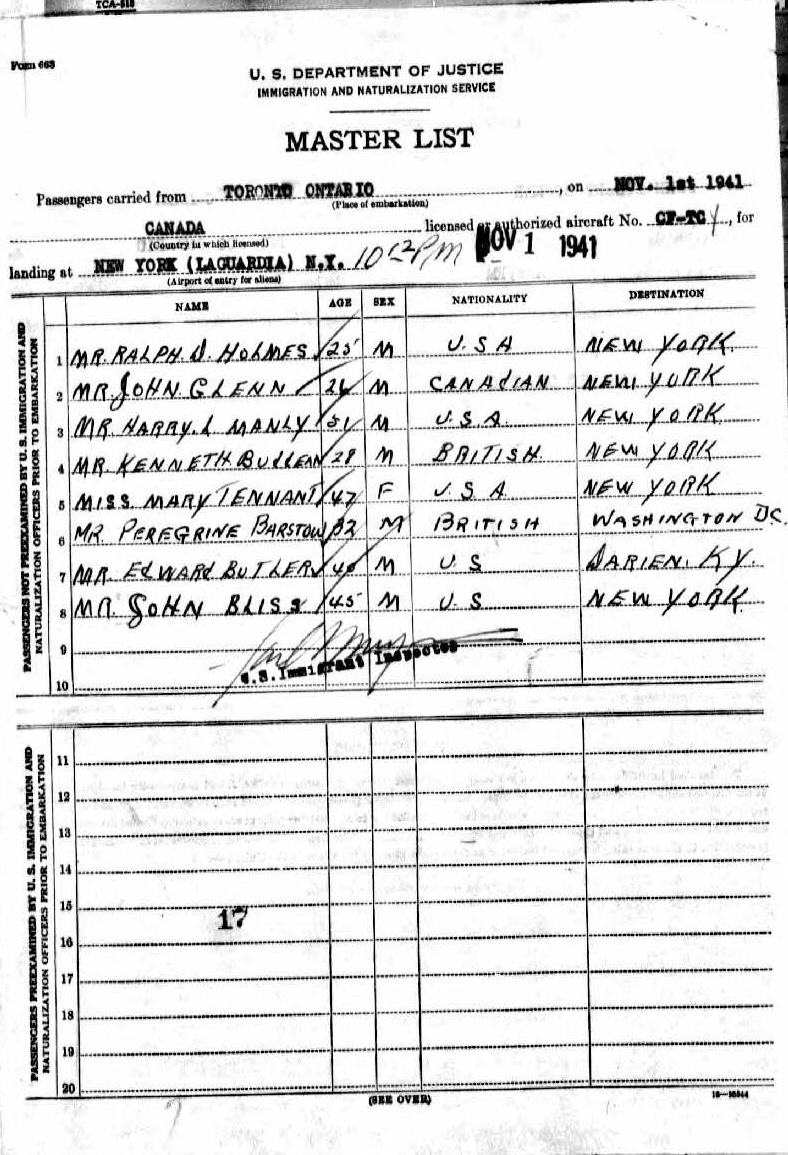 TCA-518
Form 663
U. S. DEPARTMENT OF JUSTICE
IMMIGRATION AND NATURALIZATION SERVICE
MASTER LIST
Passengers carried from TORONTO ONTARIO, on NOV. 1st 1941
(Place of embarkation)
CANADA licensed or authorized aircraft No. CF-TC, for
(Country in which licensed)
landing at NEW YORK (LAGUARDIA) N.Y. 10 PM NOV 1 1941
(Airport of entry for aliens)
NAME AGE SEX NATIONALITY DESTINATION
PASSENGERS NOT PREEXAMINED BY U. S. IMMIGRATION AND
NATURALIZATION OFFICERS PRIOR TO EMBARKATION
1 MR. RALPH D. HOLMES 25 M U.S.A NEW YORK.
2 MR JOHN GLENN 26 M CANADIAN NEW YORK
3 MR. HARRY. L MANLY 51 M U.S.A. NEW YORK
4 MR. KENNETH 28 M BRITISH. NEW YORK
5 MISS. MARY TENNANT 47 F U.S.A. NEW YORK
6 MR. PEREGRINE BARSTOW 32 M BRITISH WASHINGTON DC.
7 MR. EDWARD BUTLER 40 M U.S DARIEN. KY.
8 MR. JOHN BLISS 45 M U.S NEW YORK.
9
U.S. Immigrant Inspector
10
PASSENGERS PREEXAMINED BY U. S. IMMIGRATION AND
NATURALIZATION OFFICERS PRIOR TO EMBARKATION
11
12
13
14
15
17
16
17
18
19
20
(SEE OVER)